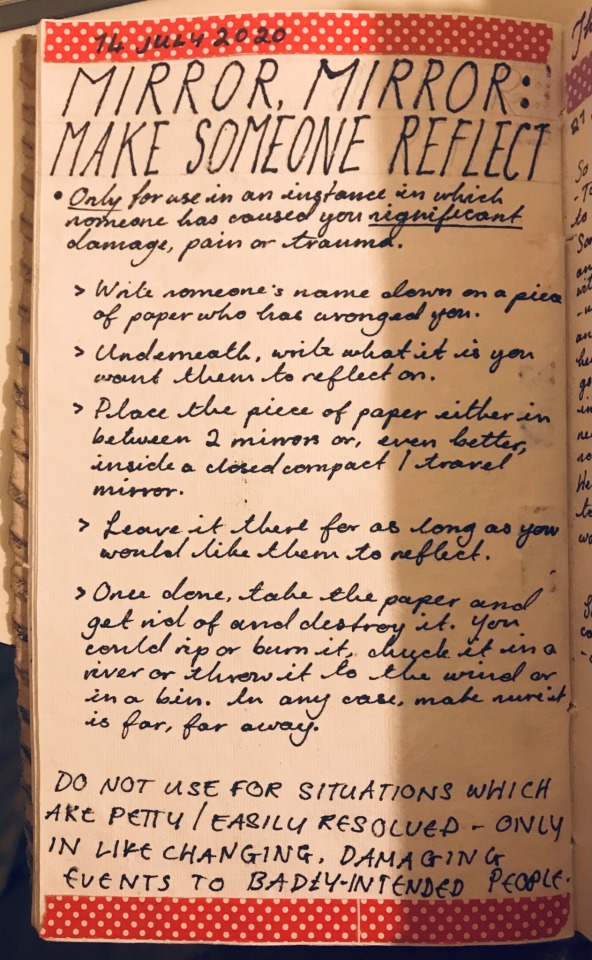 14 JULY 2020
MIRROR, MIRROR:
MAKE SOMEONE REFLECT
• Only for use in an instance in which
someone has caused you significant
damage, pain or trauma.
> Write someone's name down on a piece
of paper who has wronged you.
> Underneath, write what it is you
want them to reflect on.
> Place the piece of paper either in
between 2 mirrors or, even better,
inside a closed compact / travel
mirror.
> Leave it there for as long as you
would like them to reflect.
> Once done, take the paper and
get rid of and destroy it. You
could rip or burn it, chuck it in a
river or throw it to the wind or
in a bin. In any case, make sure it
is far, far away.
DO NOT USE FOR SITUATIONS WHICH
ARE PETTY / EASILY RESOLVED - ONLY
IN LIFE CHANGING, DAMAGING
EVENTS TO BADLY-INTENDED PEOPLE.